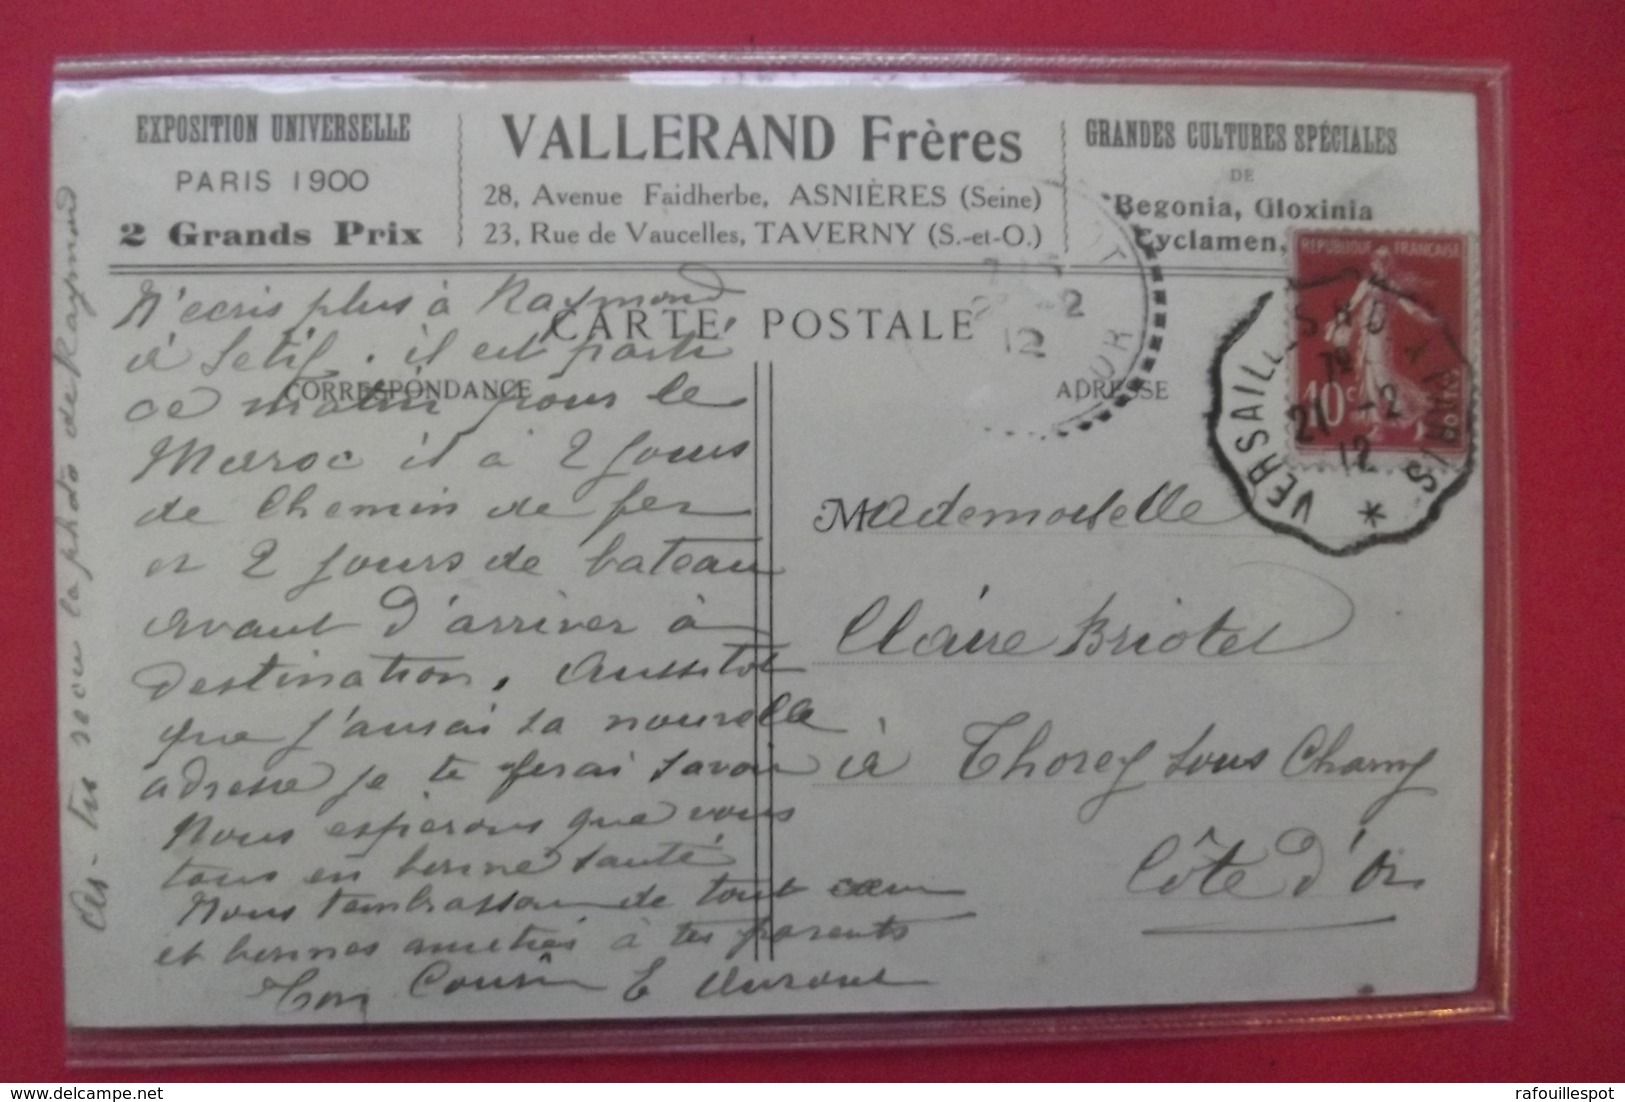 EXPOSITION UNIVERSELLE
PARIS 1900
2 Grands Prix
VALLERAND Frères
28, Avenue Faidherbe, ASNIÈRES (Seine)
23, Rue de Vaucelles, TAVERNY (S.-et-O.)
GRANDES CULTURES SPÉCIALES
DE
Begonia, Gloxinia
Cyclamen,
CARTE POSTALE
CORRESPONDANCE
ADRESSE
N'ecris plus à Raymond
à Setif. il est parti
ce matin pour le
Maroc il à 2 jours
de Chemin de fer
et 2 jours de bateau
avant d'arriver à
destination. Aussitot
que j'aurai sa nouvelle
adresse je te ferai savoir
Nous esperons que vous
tous en bonne santé
Nous t'embrassons de tout cœur
et bonnes amitiés à tes parents
Ton Cousin E
As-tu recu la photo de Raymond
Mademoiselle
Claire Briotet
à Thorey sous Charny
Côte d'Or
REPUBLIQUE FRANÇAISE
10c
POSTES
VERSAILL-S R D A PARIS
21 -2
12
-2
12
rafouillespot